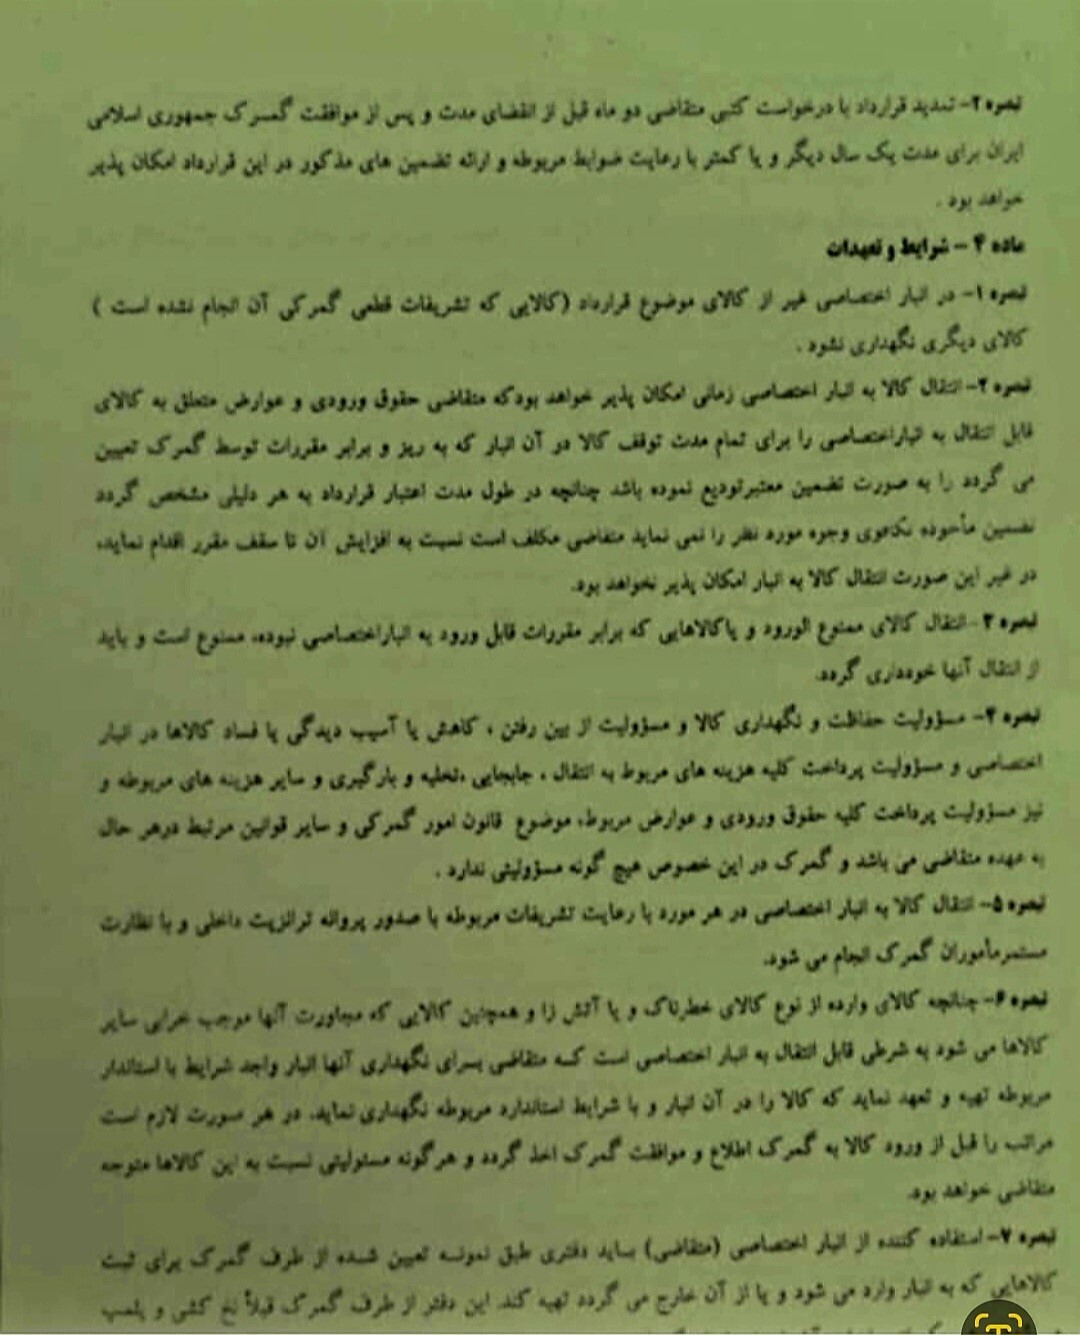 تبصره ۲- تمدید قرارداد با درخواست کتبی متقاضی دو ماه قبل از انقضای مدت و پس از موافقت گمرک جمهوری اسلامی
ایران برای مدت یک سال دیگر و یا کمتر با رعایت ضوابط مربوطه و ارائه تضمین های مذکور در این قرارداد امکان پذیر
خواهد بود .
ماده ۴ - شرایط و تعهدات
تبصره ۱- در انبار اختصاصی غیر از کالای موضوع قرارداد (کالایی که تشریفات قطعی گمرکی آن انجام نشده است )
کالای دیگری نگهداری نشود .
تبصره ۲- انتقال کالا به انبار اختصاصی زمانی امکان پذیر خواهد بودکه متقاضی حقوق ورودی و عوارض متعلق به کالای
قابل انتقال به انباراختصاصی را برای تمام مدت توقف کالا در آن انبار که به ریز و برابر مقررات توسط گمرک تعیین
می گردد را به صورت تضمین معتبرتودیع نموده باشد چنانچه در طول مدت اعتبار قرارداد به هر دلیلی مشخص گردد
تضمین مأخوذه تکافوی وجوه مورد نظر را نمی نماید متقاضی مکلف است نسبت به افزایش آن تا سقف مقرر اقدام نماید،
در غیر این صورت انتقال کالا به انبار امکان پذیر نخواهد بود.
تبصره ۳ -انتقال کالای ممنوع الورود و یاکالاهایی که برابر مقررات قابل ورود به انباراختصاصی نبوده، ممنوع است و باید
از انتقال آنها خودداری گردد.
تبصره ۴- مسؤولیت حفاظت و نگهداری کالا و مسؤولیت از بین رفتن ، کاهش یا آسیب دیدگی یا فساد کالاها در انبار
اختصاصی و مسؤولیت پرداخت کلیه هزینه های مربوط به انتقال ، جابجایی ،تخلیه و بارگیری و سایر هزینه های مربوطه و
نیز مسؤولیت پرداخت کلیه حقوق ورودی و عوارض مربوط، موضوع قانون امور گمرکی و سایر قوانین مرتبط درهر حال
به عهده متقاضی می باشد و گمرک در این خصوص هیچ گونه مسؤولیتی ندارد .
تبصره ۵- انتقال کالا به انبار اختصاصی در هر مورد با رعایت تشریفات مربوطه با صدور پروانه ترانزیت داخلی و با نظارت
مستمرمأموران گمرک انجام می شود.
تبصره ۶- چنانچه کالای وارده از نوع کالای خطرناک و یا آتش زا و همچنین کالایی که مجاورت آنها موجب خرابی سایر
کالاها می شود به شرطی قابل انتقال به انبار اختصاصی است که متقاضی برای نگهداری آنها انبار واجد شرایط با استاندار
مربوطه تهیه و تعهد نماید که کالا را در آن انبار و با شرایط استاندارد مربوطه نگهداری نماید. در هر صورت لازم است
مراتب را قبل از ورود کالا به گمرک اطلاع و موافقت گمرک اخذ گردد و هرگونه مسئولیتی نسبت به این کالاها متوجه
متقاضی خواهد بود.
تبصره ۷- استفاده کننده از انبار اختصاصی (متقاضی) باید دفتری طبق نمونه تعیین شده از طرف گمرک برای ثبت
کالاهایی که به انبار وارد می شود و یا از آن خارج می گردد تهیه کند. این دفتر از طرف گمرک قبلاً نخ کشی و پلمپ